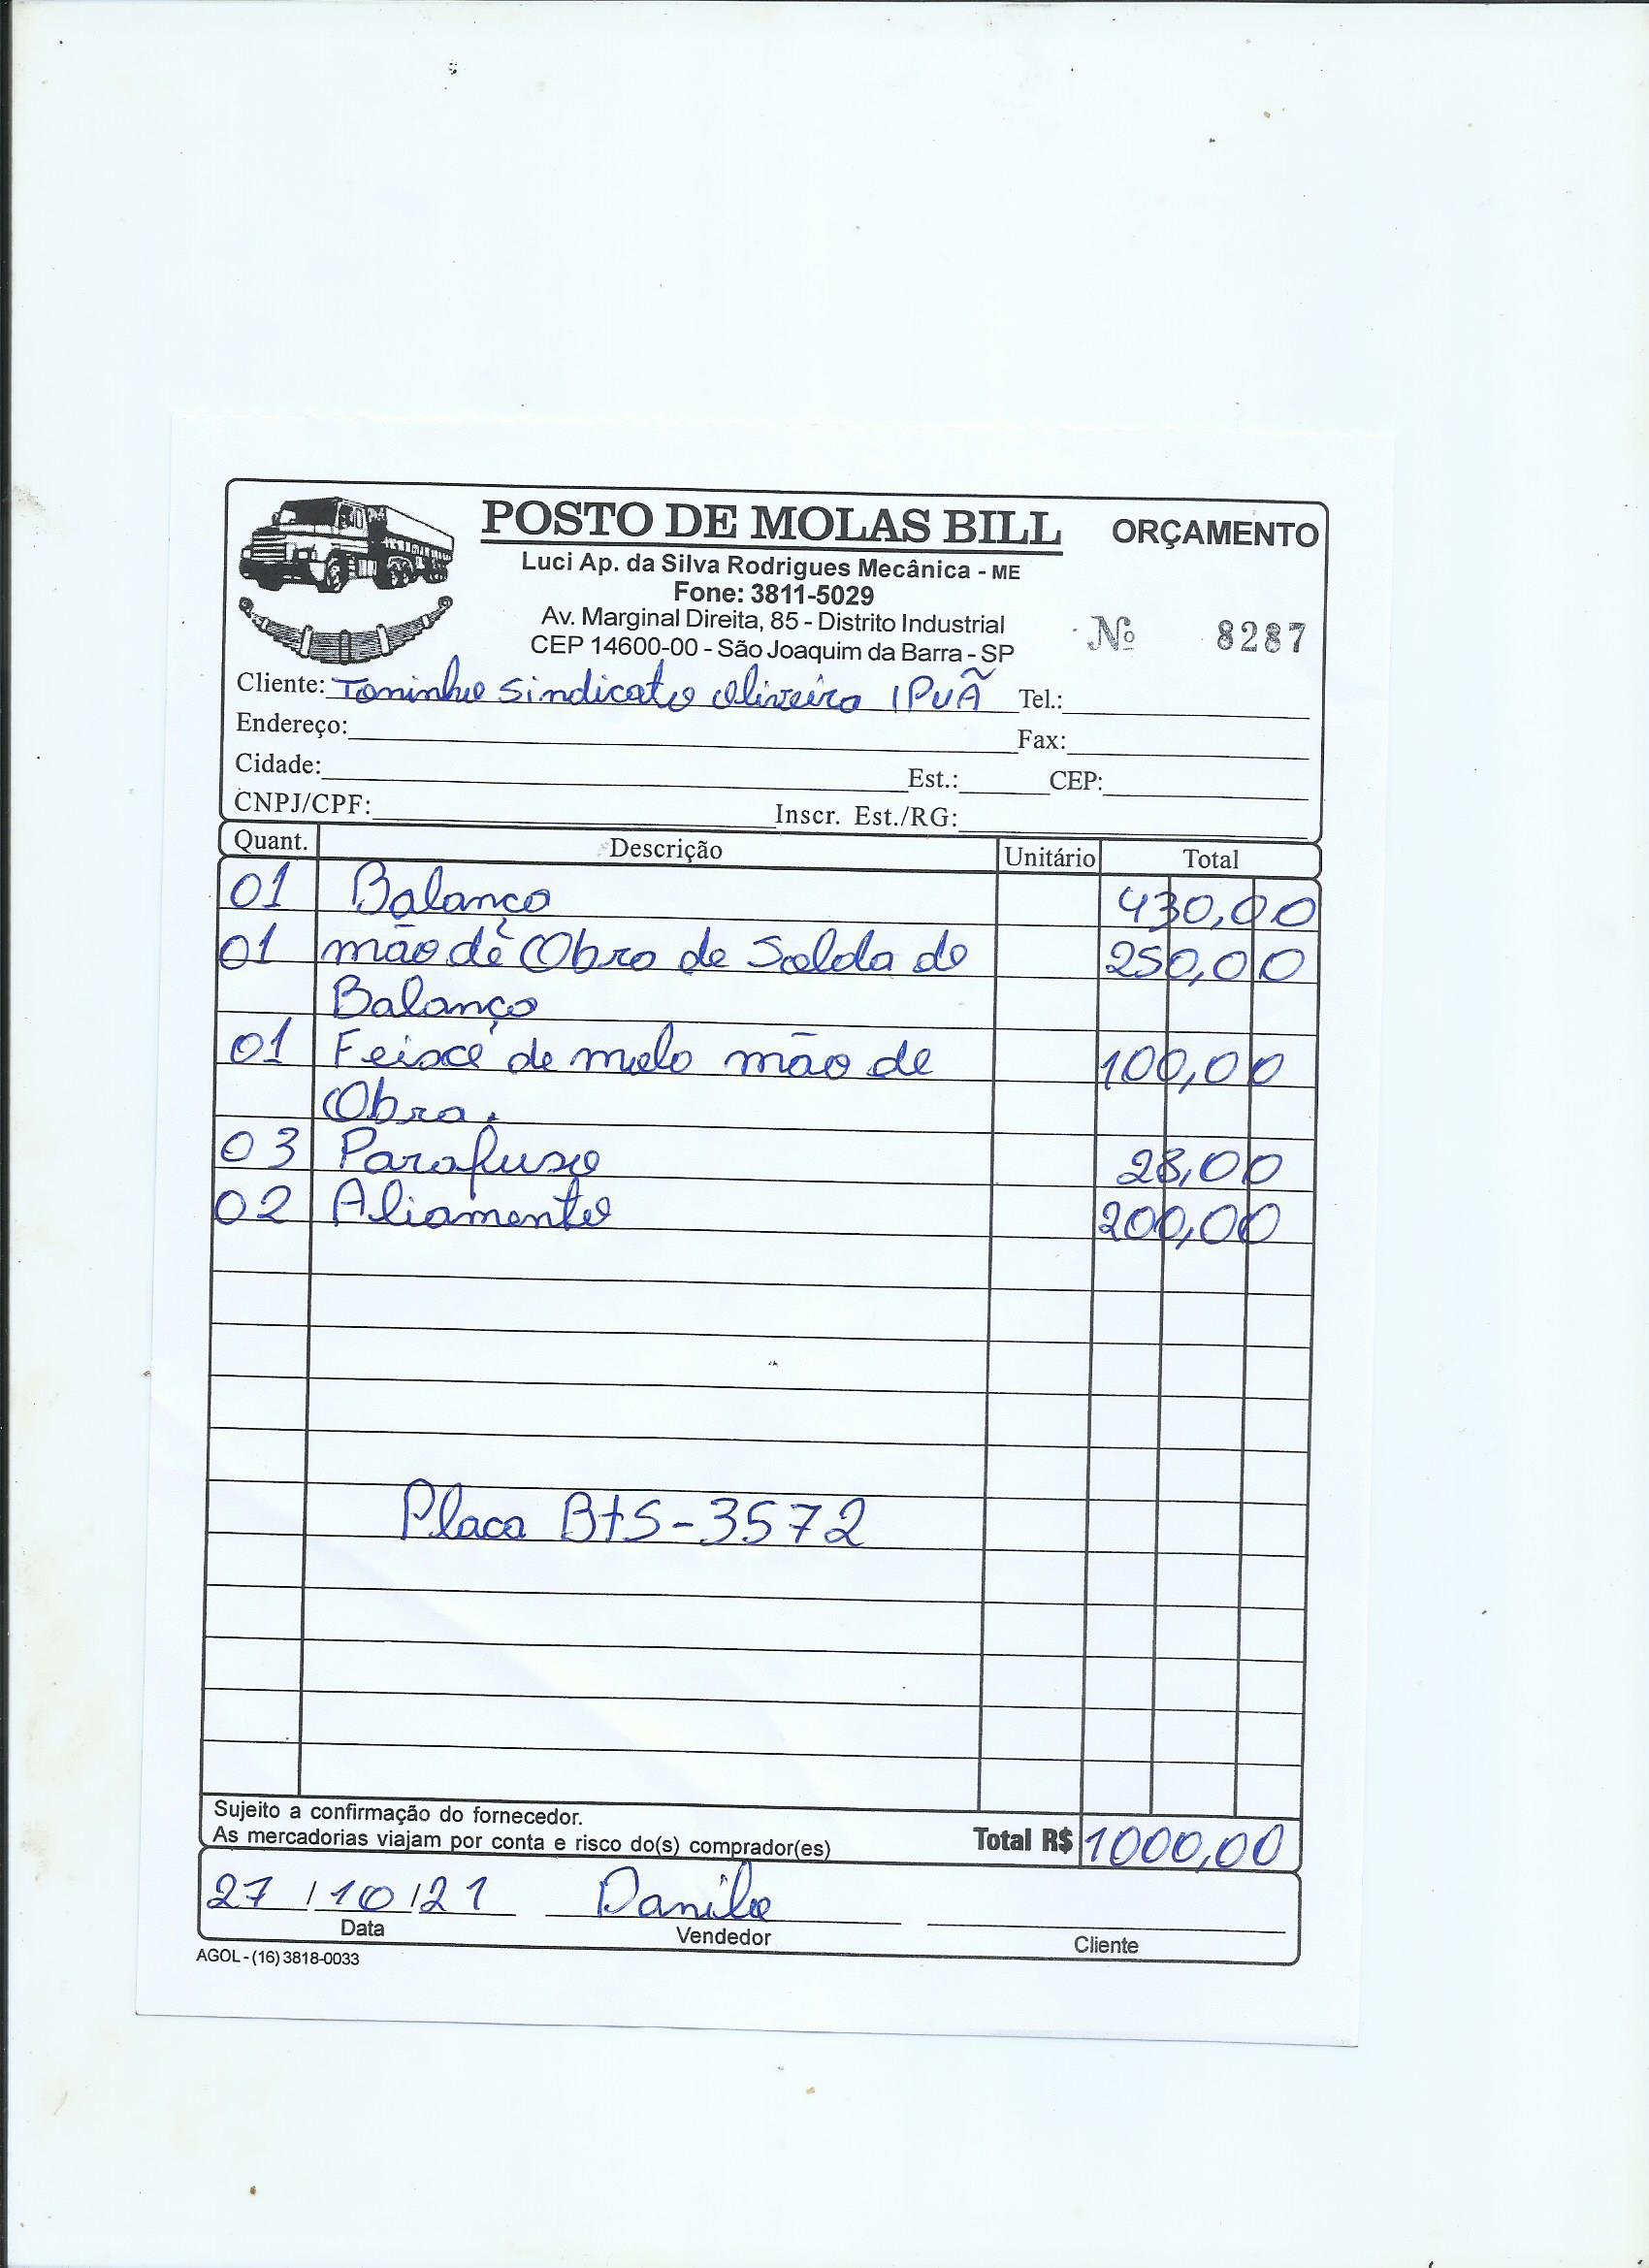 POSTO DE MOLAS BILL ORÇAMENTO
Luci Ap. da Silva Rodrigues Mecânica - ME
Fone: 3811-5029
Av. Marginal Direita, 85 - Distrito Industrial
CEP 14600-00 - São Joaquim da Barra - SP
Nº 8287
Cliente: Toninho Sindicato Oliveira IPUÃ Tel.:
Endereço: Fax:
Cidade: Est.: CEP:
CNPJ/CPF: Inscr. Est./RG:
Quant. Descrição Unitário Total
01 Balanço 430,00
01 mão de Obra de Solda do 250,00
Balanço
01 Feixe de mola mão de 100,00
Obra.
03 Parafuso 28,00
02 Aliamento 200,00
Placa BtS-3572
Sujeito a confirmação do fornecedor.
As mercadorias viajam por conta e risco do(s) comprador(es) Total R$ 1000,00
27/10/21 Danilo
Data Vendedor Cliente
AGOL - (16) 3818-0033